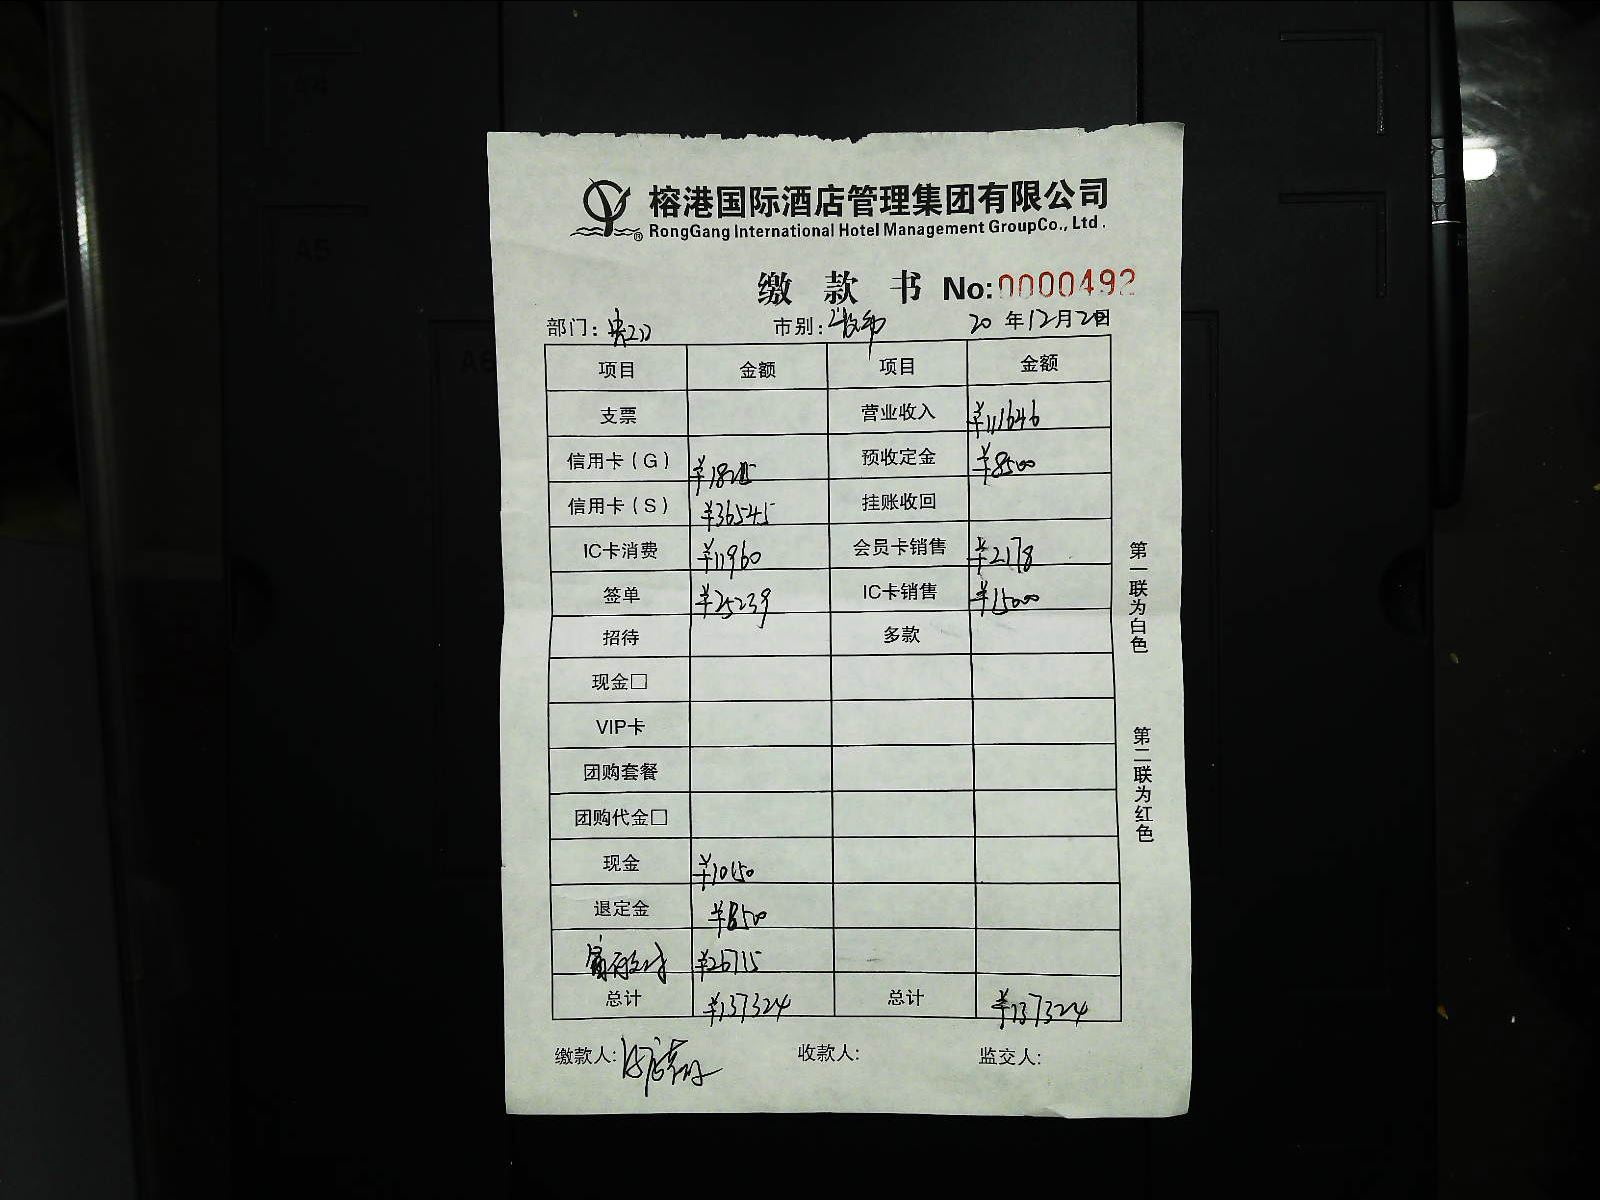 A4
A5
A6
榕港国际酒店管理集团有限公司
®
RongGang International Hotel Management GroupCo., Ltd.
缴 款 书 No:0000492
部门: 市别: 20 年 12 月 20 日
项目 金额 项目 金额
支票 营业收入 ¥111646
信用卡(G) ¥18215 预收定金 ¥8500
信用卡(S) ¥36545 挂账收回
IC卡消费 ¥11960 会员卡销售 ¥2178
签单 ¥25239 IC卡销售 ¥15000
招待 多款
现金□
VIP卡
团购套餐
团购代金□
现金 ¥10150
退定金 ¥8500
¥26715
总计 ¥137324 总计 ¥137324
缴款人: 收款人: 监交人:
第一联为白色
第二联为红色